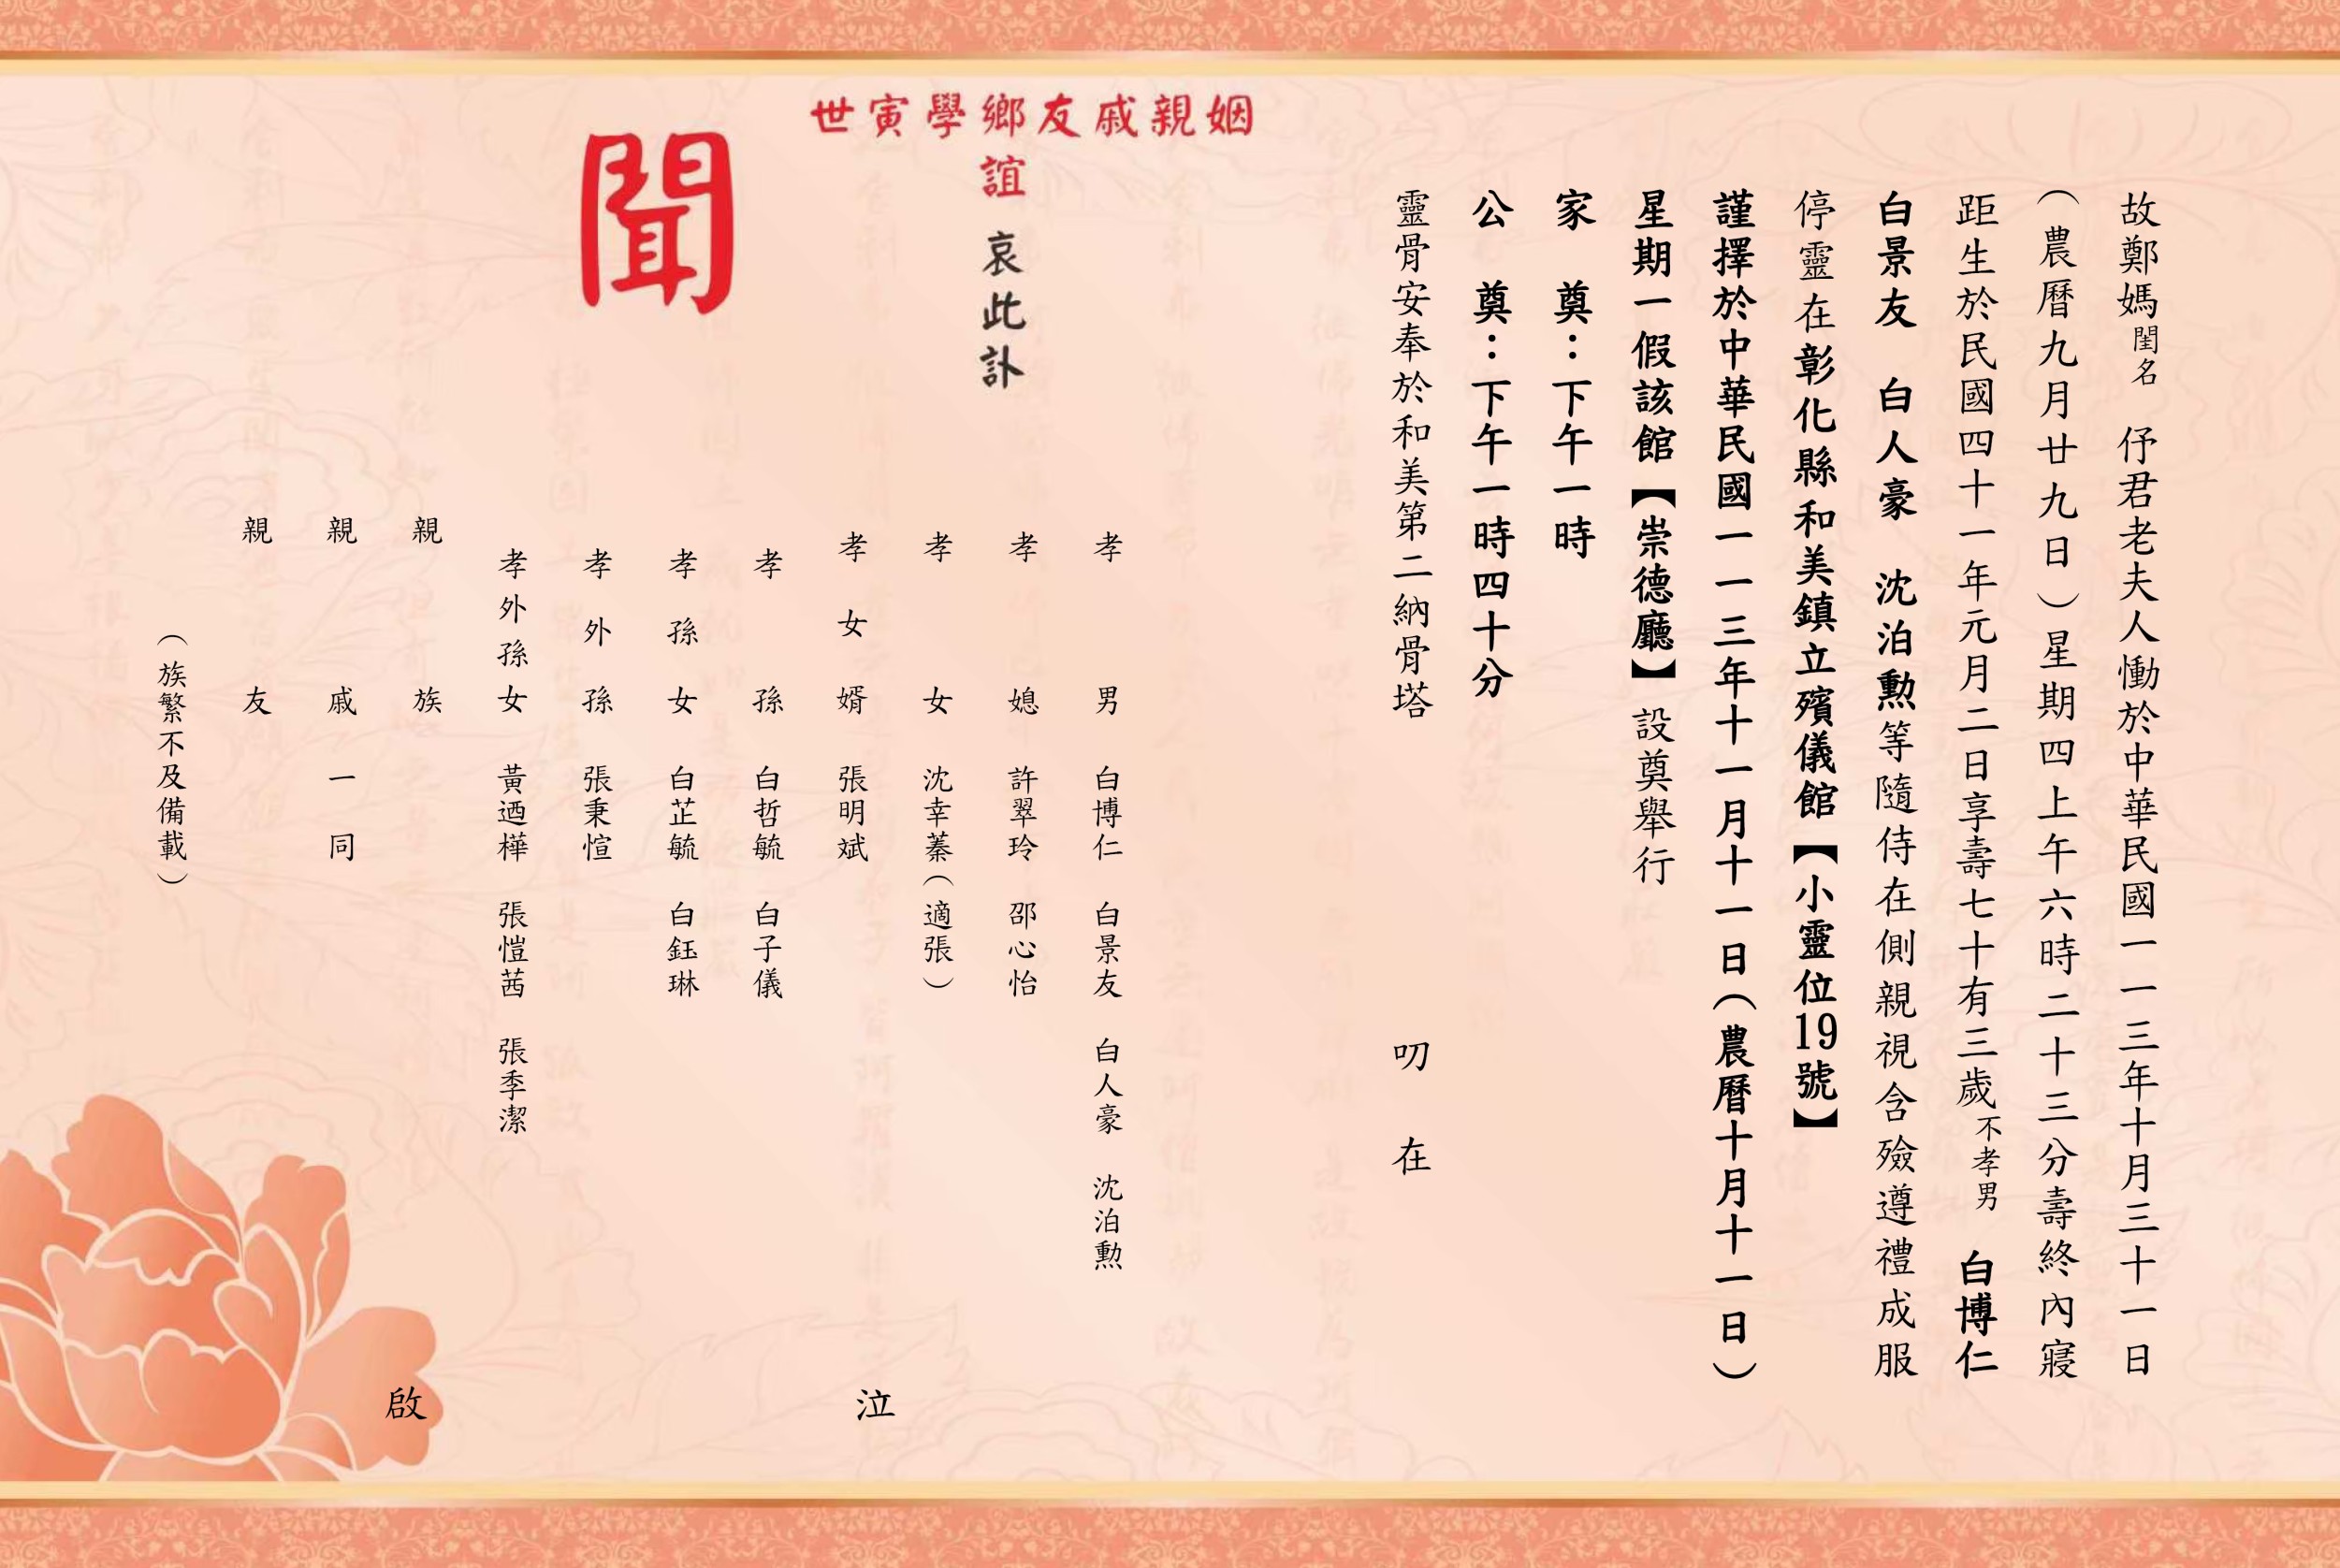 故鄭媽閨名　伃君老夫人慟於中華民國一一三年十月三十一日
（農曆九月廿九日）星期四上午六時二十三分壽終內寢
距生於民國四十一年元月二日享壽七十有三歲不孝男　白博仁
白景友　白人豪　沈泊勳等隨侍在側親視含殮遵禮成服
停靈在彰化縣和美鎮立殯儀館【小靈位19號】
謹擇於中華民國一一三年十一月十一日（農曆十月十一日）
星期一假該館【崇德廳】設奠舉行
家　奠：下午一時
公　奠：下午一時四十分
靈骨安奉於和美第二納骨塔
叨　在
姻親戚友鄉學寅世
誼　哀此訃
聞
孝　男　白博仁　白景友　白人豪　沈泊勳
孝　媳　許翠玲　邵心怡
孝　女　沈幸蓁（適張）
孝女婿　張明斌
孝　孫　白哲毓　白子儀
孝孫女　白芷毓　白鈺琳
孝外孫　張秉愃
孝外孫女　黃迺樺　張愷茜　張季潔
親　族
親　戚　一　同
親　友
（族繁不及備載）
泣
啟